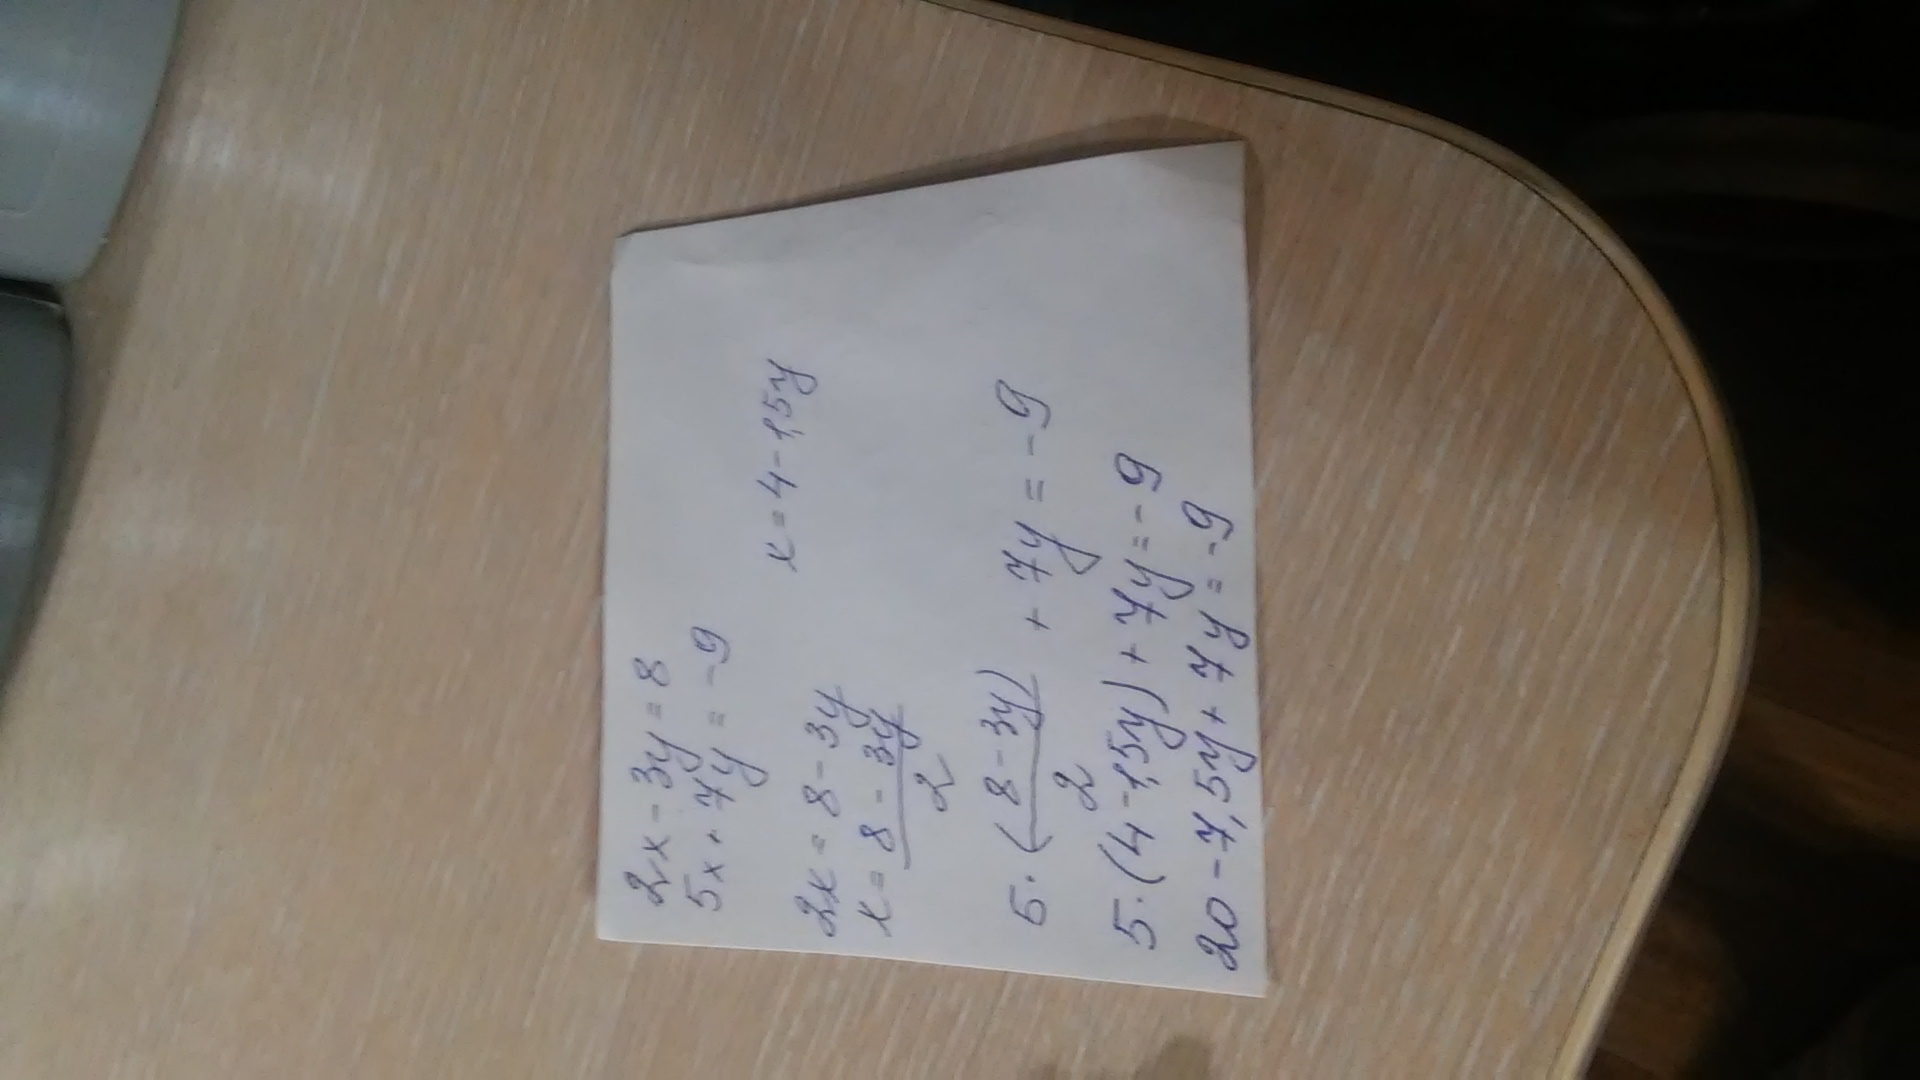 2x - 3y = 8
5x + 7y = -9
2x = 8 - 3y
x = 4 - 1,5y
x = 8 - 3y / 2
5 · (8 - 3y) / 2 + 7y = -9
5 · (4 - 1,5y) + 7y = -9
20 - 7,5y + 7y = -9